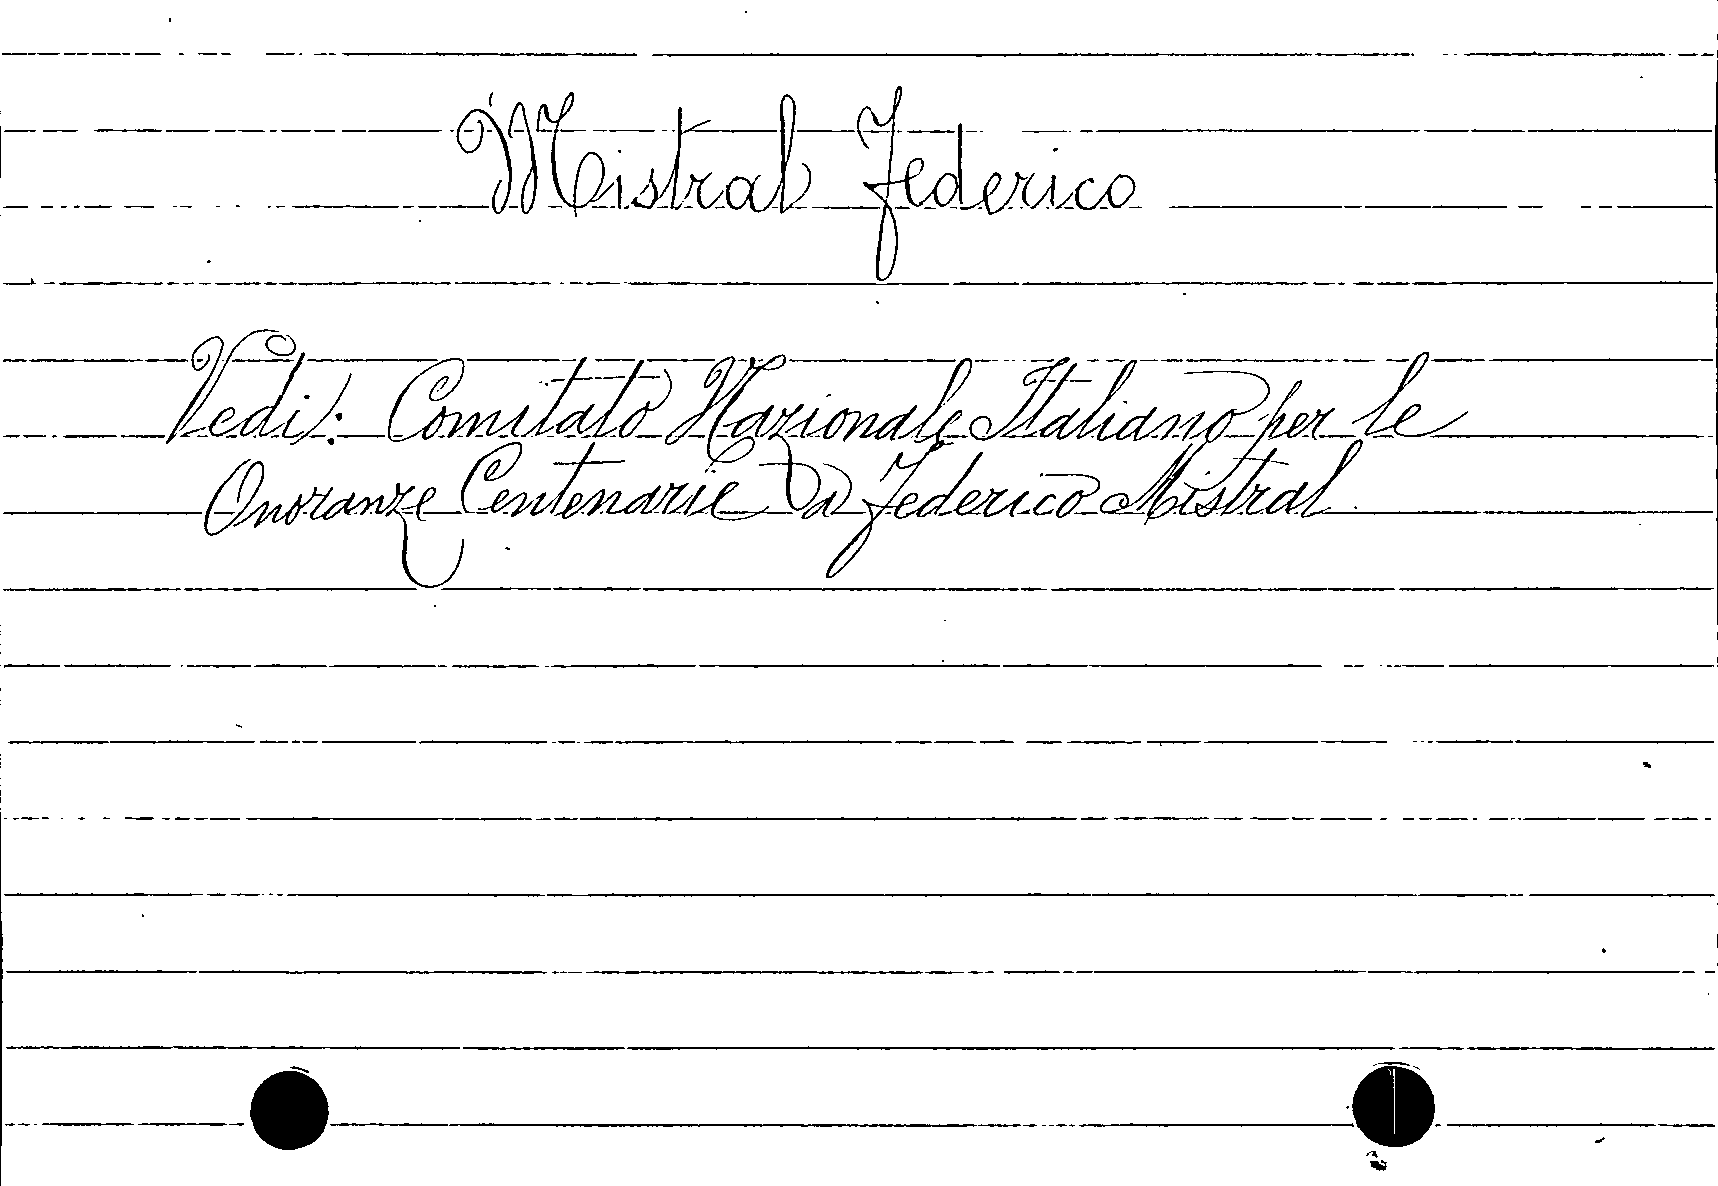 Mistral Federico
Vedi: Comitato Nazionale Italiano per le
Onoranze Centenarie a Federico Mistral